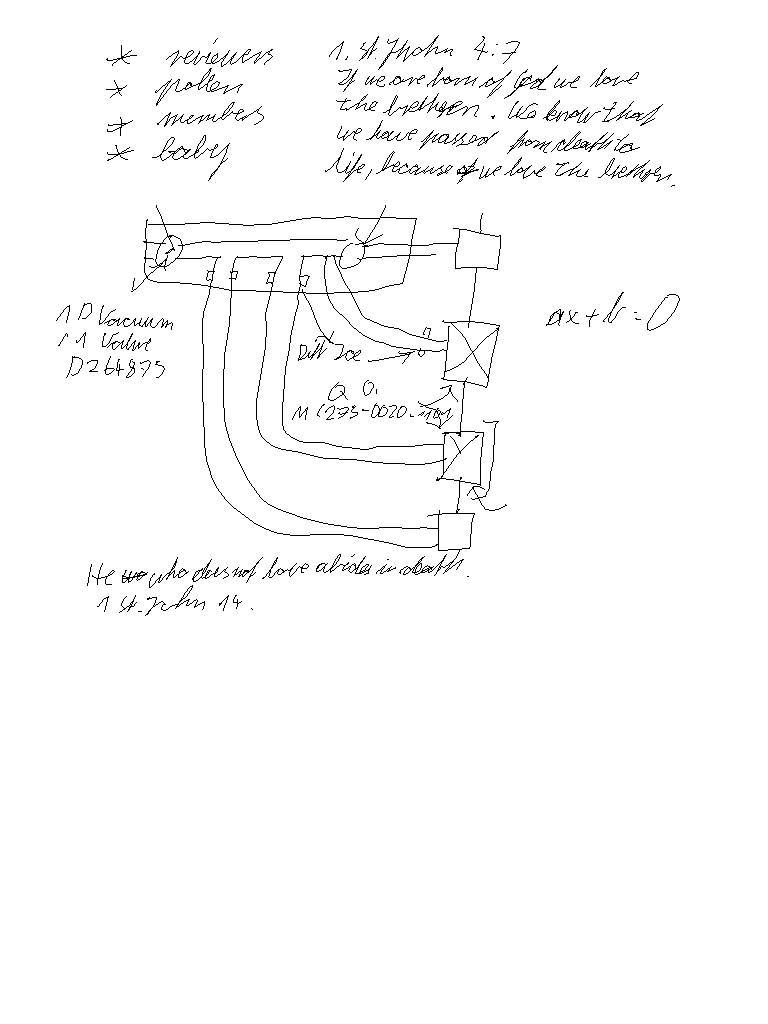 * reviewers
* pollen
* members
* baby
1. St. Jhohn 4:7
If we are born of God we love
the brethren. We know that
we have passed from death to
life, because we love the brethren.
1 D Vacuum
1 Valve
D264875
ax+b=0
Q O.
M (273-0020-
He who does not love abides in death.
1 St. John 14.